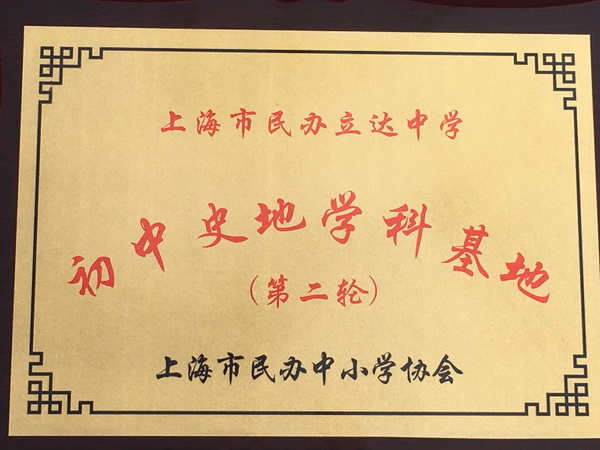 上海市民办立达中学
初中史地学科基地
（第二轮）
上海市民办中小学协会